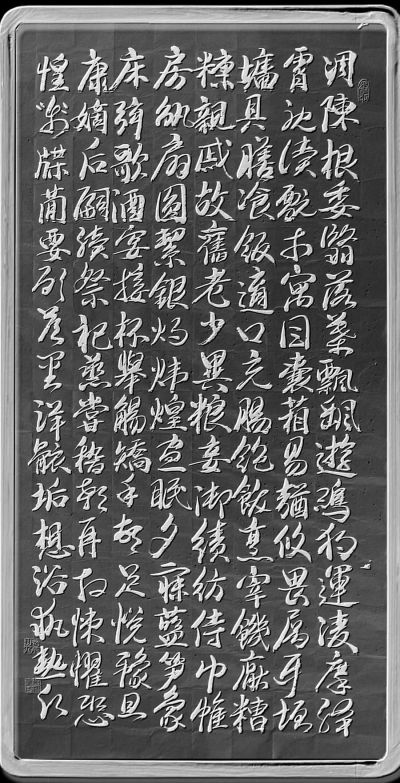 凋陳根委翳落葉飄颻遊鵾獨運凌摩絳
霄耽讀翫市寓目囊箱易輶攸畏屬耳垣
墻具膳飡飯適口充腸飽飫烹宰饑厭糟
糠親戚故舊老少異粮妾御績紡侍巾帷
房紈扇圓絜銀燭煒煌晝眠夕寐藍笋象
床弦歌酒宴接杯舉觴矯手頓足悅豫且
康嫡后嗣續祭祀蒸嘗稽顙再拜悚懼恐
惶牋牒簡要顧答審詳骸垢想浴執熱願